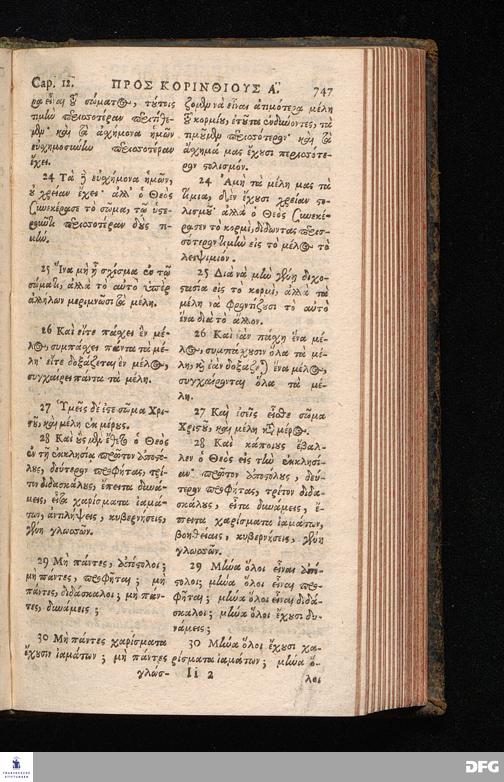 Cap. 12. ΠΡΟΣ ΚΟΡΙΝΘΙΟΥΣ Α΄. 747
ρα εἶναι τοῦ σώματος, τούτοις
τιμὴν περισσοτέραν περιτίθε-
μεν· καὶ τὰ ἀσχήμονα ἡμῶν
εὐσχημοσύνην περισσοτέραν
ἔχει.
24 Τὰ δὲ εὐσχήμονα ἡμῶν,
οὐ χρείαν ἔχει· ἀλλ' ὁ Θεὸς
συνεκέρασε τὸ σῶμα, τῷ ὑστε-
ροῦντι περισσοτέραν δοὺς τι-
μήν.
25 Ἵνα μὴ ᾖ σχίσμα ἐν τῷ
σώματι, ἀλλὰ τὸ αὐτὸ ὑπὲρ
ἀλλήλων μεριμνῶσι τὰ μέλη.
26 Καὶ εἴτε πάσχει ἓν μέ-
λος, συμπάσχει πάντα τὰ μέ-
λη· εἴτε δοξάζεται ἓν μέλος,
συγχαίρει πάντα τὰ μέλη.
27 Ὑμεῖς δέ ἐστε σῶμα Χρι-
στοῦ, καὶ μέλη ἐκ μέρους.
28 Καὶ οὓς μὲν ἔθετο ὁ Θεὸς
ἐν τῇ ἐκκλησίᾳ πρῶτον ἀποστό-
λους, δεύτερον προφήτας, τρί-
τον διδασκάλους, ἔπειτα δυνά-
μεις, εἶτα χαρίσματα ἰαμά-
των, ἀντιλήψεις, κυβερνήσεις,
γένη γλωσσῶν.
29 Μὴ πάντες, ἀπόστολοι;
μὴ πάντες, προφῆται; μὴ
πάντες, διδάσκαλοι; μὴ πάν-
τες, δυνάμεις;
30 Μὴ πάντες χαρίσματα
ἔχουσιν ἰαμάτων; μὴ πάντες
γλώσ-
ζομεν νὰ εἶναι ἀτιμότερα μέλη
τοῦ κορμίου, ἐτοῦτα ἐνδύνοντες, τὰ
τιμοῦμεν περισσότερον· καὶ τὰ
ἄσχημά μας ἔχουσι περισσότε-
ρον στολισμόν.
24 Ἀμὴ τὰ μέλη μας τὰ
τίμια, δὲν ἔχουσι χρείαν στο-
λισμοῦ· ἀλλὰ ὁ Θεὸς συνεκέ-
ρασεν τὸ κορμὶ, δίδωντας περισ-
σότερην τιμὴν εἰς τὸ μέλος τὸ
λειψιμιόν.
25 Διὰ νὰ μὴν γένῃ διχο-
στασία εἰς τὸ κορμὶ, ἀλλὰ τὰ
μέλη νὰ φροντίζουσι τὸ αὐτὸ
ἕνα διὰ τὸ ἄλλον.
26 Καὶ ἐὰν πάσχῃ ἕνα μέ-
λος, συμπάσχουσιν ὅλα τὰ μέ-
λη, καὶ ἐὰν δοξάζεται ἕνα μέλος,
συγχαίρονται ὅλα τὰ μέ-
λη.
27 Καὶ ἐσεῖς εἶσθε σῶμα
Χριστοῦ, καὶ μέλη κατὰ μέρος.
28 Καὶ κάποιους ἔβαλ-
λεν ὁ Θεὸς εἰς τὴν ἐκκλησί-
αν· πρῶτον ἀποστόλους, δεύ-
τερον προφήτας, τρίτον διδα-
σκάλους, εἶτα δυνάμεις, ἔ-
πειτα χαρίσματα ἰαμάτων,
βοηθείαις, κυβερνήσεις, γένη
γλωσσῶν.
29 Μήνα ὅλοι εἶναι ἀπό-
στολοι; μήνα ὅλοι εἶναι προ-
φῆται; μήνα ὅλοι εἶναι διδά-
σκαλοι; μήνα ὅλοι ἔχουσι δυ-
νάμεις;
30 Μήνα ὅλοι ἔχουσι χα-
ρίσματα ἰαμάτων; μήνα ὅ-
Ii 2 λοι
DFG